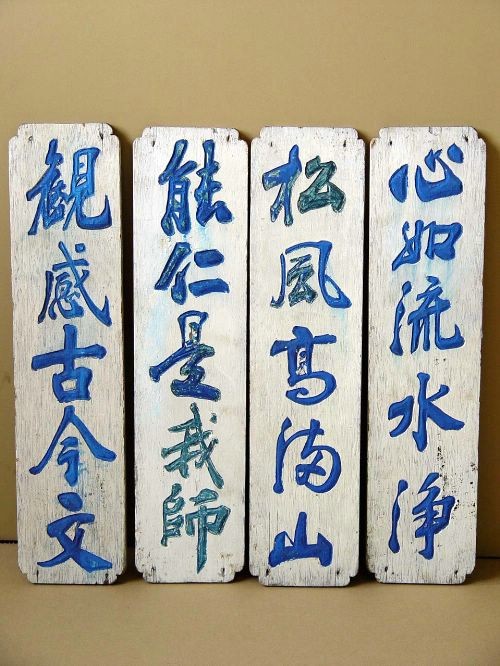 心如流水净
松風高满山
能仁是我師
観感古今文